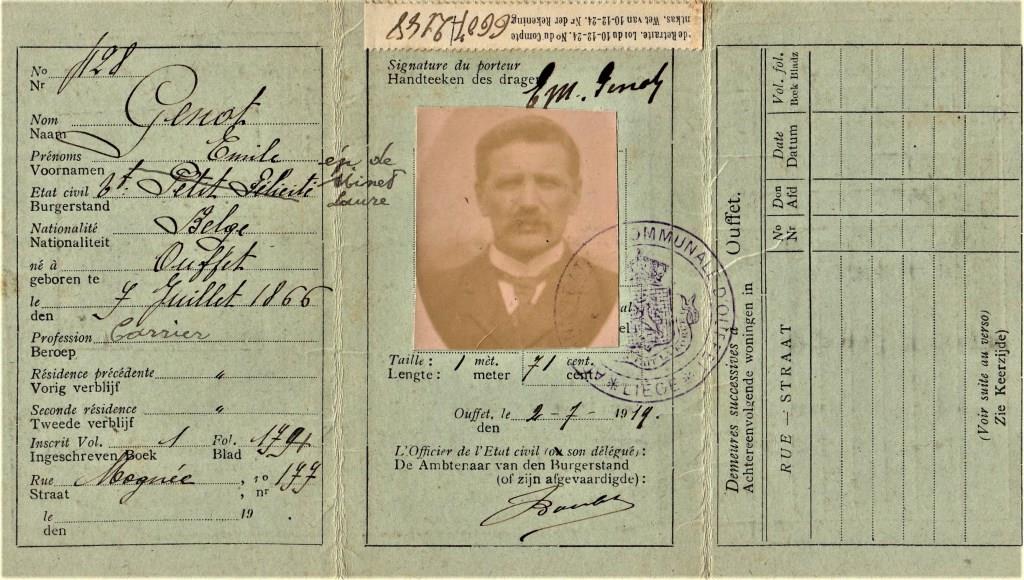 No 1128
Nr
Nom Genot
Naam
Prénoms Emile
Voornamen
Etat civil Ct. Petit Félicité
Burgerstand
ép de
Ninet
Laure
Nationalité Belge
Nationaliteit
né à Ouffet
geboren te
le 7 Juillet 1866
den
Profession Carrier
Beroep
Résidence précédente "
Vorig verblijf
Seconde résidence "
Tweede verblijf
Inscrit Vol. 1 Fol. 179
Ingeschreven Boek Blad
Rue Mognée, no 177
Straat, nr
le 19 .
den
de Retraite. Loi du 10-12-24. No du Compte
ntkas. Wet van 10-12-24. Nr der Rekening
Signature du porteur
Handteeken des drager
Em. Genot
COMMUNALE D'OUFFET
LIÉGE
Taille : 1 mèt. 71 cent.
Lengte : meter cent
Ouffet, le 2-7-1919.
den
L'Officier de l'Etat civil (ou son délégué) :
De Ambtenaar van den Burgerstand
(of zijn afgevaardigde) :
Demeures successives à
Achtereenvolgende woningen in Ouffet.
RUE — STRAAT
No
Nr
Don
Afd
Date
Datum
Vol. fol.
Boek Bladz
(Voir suite au verso)
Zie Keerzijde)